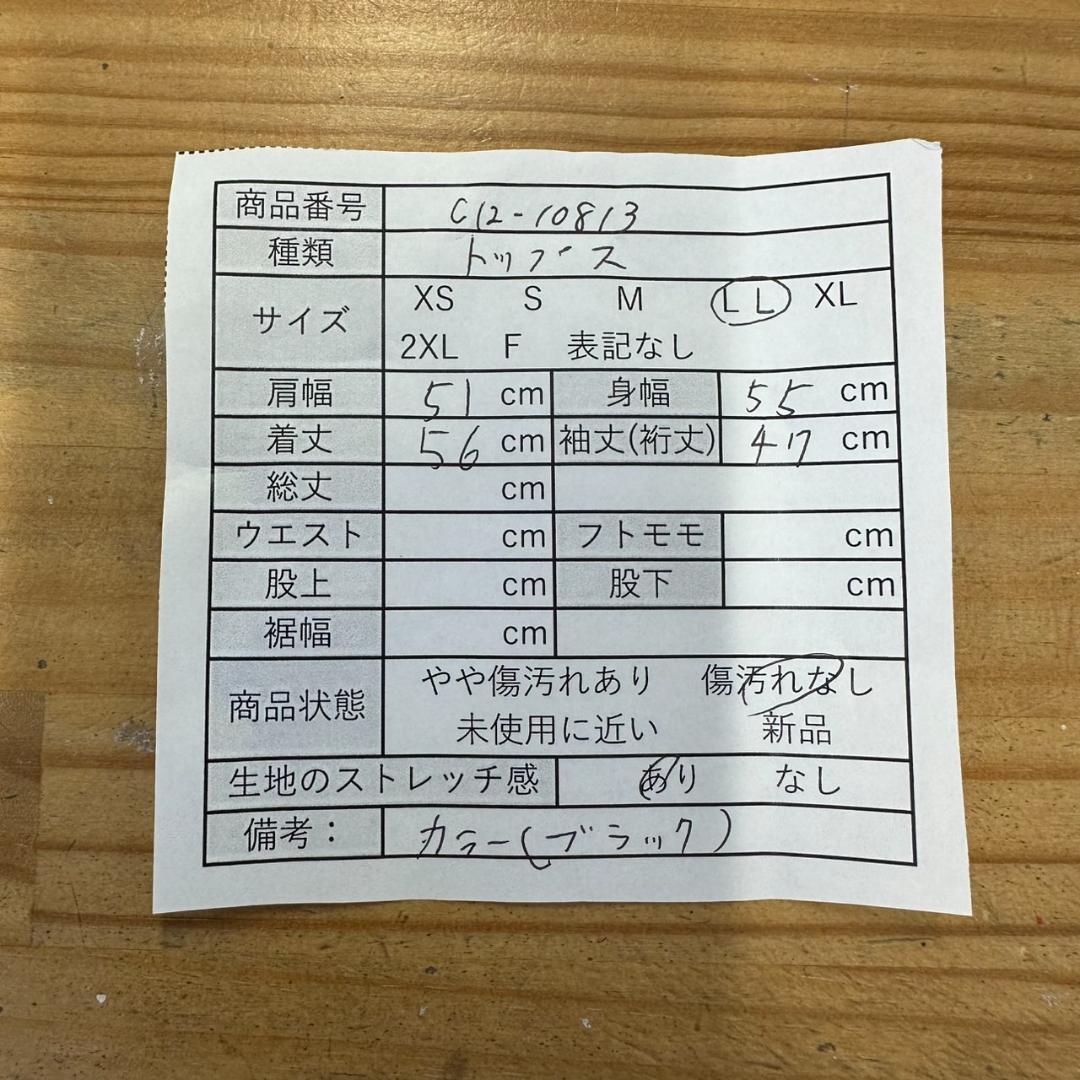 商品番号 C12-10813
種類 トップス
サイズ XS S M L L XL
2XL F 表記なし
肩幅 51 cm 身幅 55 cm
着丈 56 cm 袖丈(裄丈) 47 cm
総丈 cm
ウエスト cm フトモモ cm
股上 cm 股下 cm
裾幅 cm
商品状態 やや傷汚れあり 傷汚れなし
未使用に近い 新品
生地のストレッチ感 あり なし
備考： カラー(ブラック)